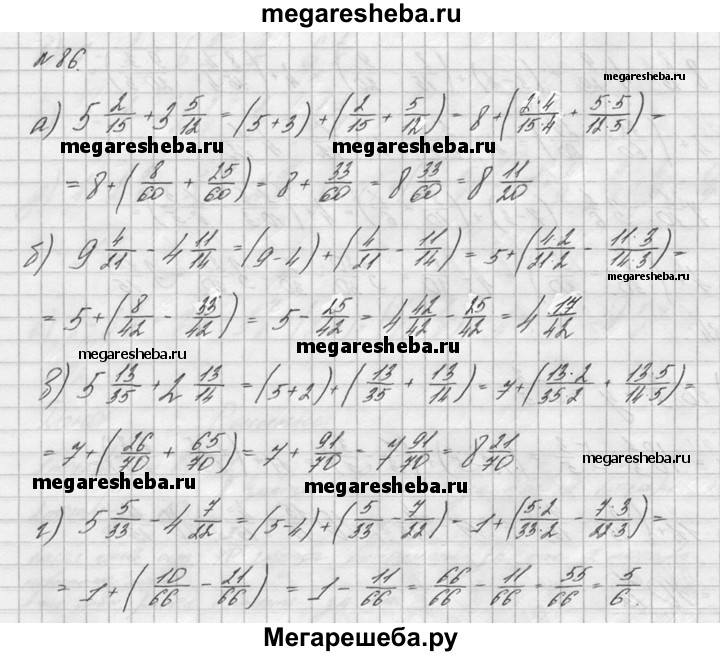 megaresheba.ru
№ 86.
megaresheba.ru
а) 5 2/15 + 3 5/12 = (5+3) + (2/15 + 5/12) = 8 + (2·4/15·4 + 5·5/12·5) =
megaresheba.ru megaresheba.ru
= 8 + (8/60 + 25/60) = 8 + 33/60 = 8 33/60 = 8 11/20
б) 9 4/21 - 4 11/14 = (9-4) + (4/21 - 11/14) = 5 + (4·2/21·2 - 11·3/14·3) =
megaresheba.ru megaresheba.ru
= 5 + (8/42 - 33/42) = 5 - 25/42 = 4 42/42 - 25/42 = 4 17/42
megaresheba.ru megaresheba.ru
в) 5 13/35 + 2 13/14 = (5+2) + (13/35 + 13/14) = 7 + (13·2/35·2 + 13·5/14·5) =
= 7 + (26/70 + 65/70) = 7 + 91/70 = 7 91/70 = 8 21/70
megaresheba.ru megaresheba.ru megaresheba.ru
г) 5 5/33 - 4 7/22 = (5-4) + (5/33 - 7/22) = 1 + (5·2/33·2 - 7·3/22·3) =
= 1 + (10/66 - 21/66) = 1 - 11/66 = 66/66 - 11/66 = 55/66 = 5/6.
Мегарешеба.ру